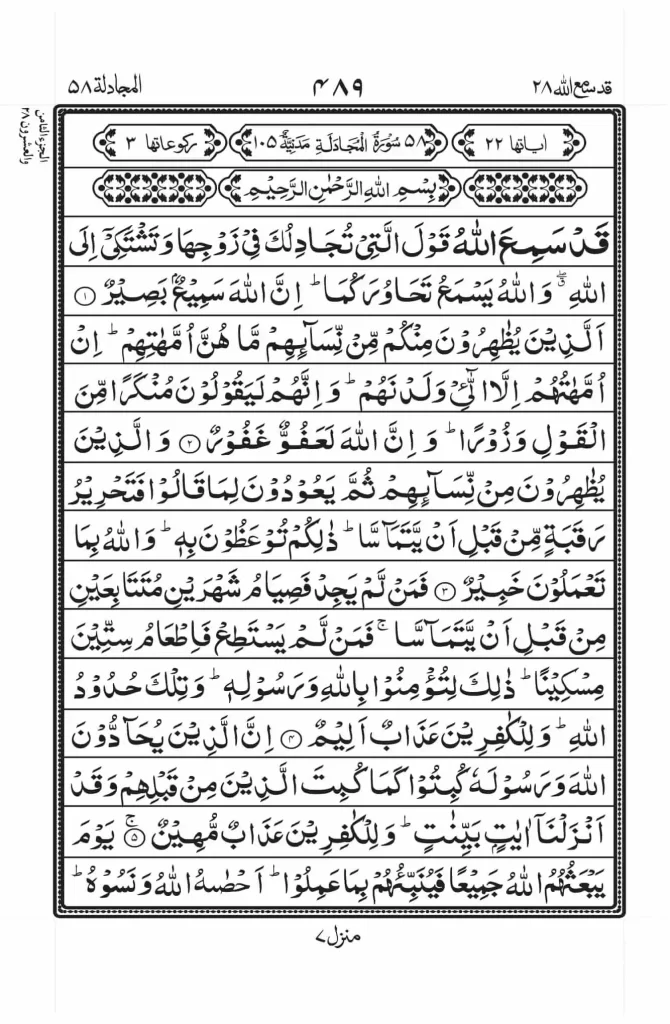 قدسمع الله ۲۸
۴۸۹
المجادلة ۵۸
الجزء الثامن والعشرون ۲۸
اٰیاتها ۲۲
۵۸ سُوْرَةُ الْمُجَادَلَةِ مَدَنِیَّةٌ ۱۰۵
رکوعاتها ۳
بِسْمِ اللهِ الرَّحْمٰنِ الرَّحِیْمِ
قَدْ سَمِعَ اللهُ قَوْلَ الَّتِیْ تُجَادِلُكَ فِیْ زَوْجِهَا وَ تَشْتَكِیْۤ اِلَی
اللهِ ۖۗ وَ اللهُ یَسْمَعُ تَحَاوُرَكُمَا ؕ اِنَّ اللهَ سَمِیْعٌۢ بَصِیْرٌ ۝۱
اَلَّذِیْنَ یُظٰهِرُوْنَ مِنْكُمْ مِّنْ نِّسَآىِٕهِمْ مَّا هُنَّ اُمَّهٰتِهِمْ ؕ اِنْ
اُمَّهٰتُهُمْ اِلَّا الّٰٓـِٔیْ وَلَدْنَهُمْ ؕ وَ اِنَّهُمْ لَیَقُوْلُوْنَ مُنْكَرًا مِّنَ
الْقَوْلِ وَ زُوْرًا ؕ وَ اِنَّ اللهَ لَعَفُوٌّ غَفُوْرٌ ۝۲ وَ الَّذِیْنَ
یُظٰهِرُوْنَ مِنْ نِّسَآىِٕهِمْ ثُمَّ یَعُوْدُوْنَ لِمَا قَالُوْا فَتَحْرِیْرُ
رَقَبَةٍ مِّنْ قَبْلِ اَنْ یَّتَمَآسَّا ؕ ذٰلِكُمْ تُوْعَظُوْنَ بِهٖ ؕ وَ اللهُ بِمَا
تَعْمَلُوْنَ خَبِیْرٌ ۝۳ فَمَنْ لَّمْ یَجِدْ فَصِیَامُ شَهْرَیْنِ مُتَتَابِعَیْنِ
مِنْ قَبْلِ اَنْ یَّتَمَآسَّا ۚ فَمَنْ لَّمْ یَسْتَطِعْ فَاِطْعَامُ سِتِّیْنَ
مِسْكِیْنًا ؕ ذٰلِكَ لِتُؤْمِنُوْا بِاللهِ وَ رَسُوْلِهٖ ؕ وَ تِلْكَ حُدُوْدُ
اللهِ ؕ وَ لِلْكٰفِرِیْنَ عَذَابٌ اَلِیْمٌ ۝۴ اِنَّ الَّذِیْنَ یُحَآدُّوْنَ
اللهَ وَ رَسُوْلَهٗ كُبِتُوْا كَمَا كُبِتَ الَّذِیْنَ مِنْ قَبْلِهِمْ وَ قَدْ
اَنْزَلْنَاۤ اٰیٰتٍۭ بَیِّنٰتٍ ؕ وَ لِلْكٰفِرِیْنَ عَذَابٌ مُّهِیْنٌ ۝۵ۚ یَوْمَ
یَبْعَثُهُمُ اللهُ جَمِیْعًا فَیُنَبِّئُهُمْ بِمَا عَمِلُوْا ؕ اَحْصٰىهُ اللهُ وَ نَسُوْهُ ؕ
منزل ۷